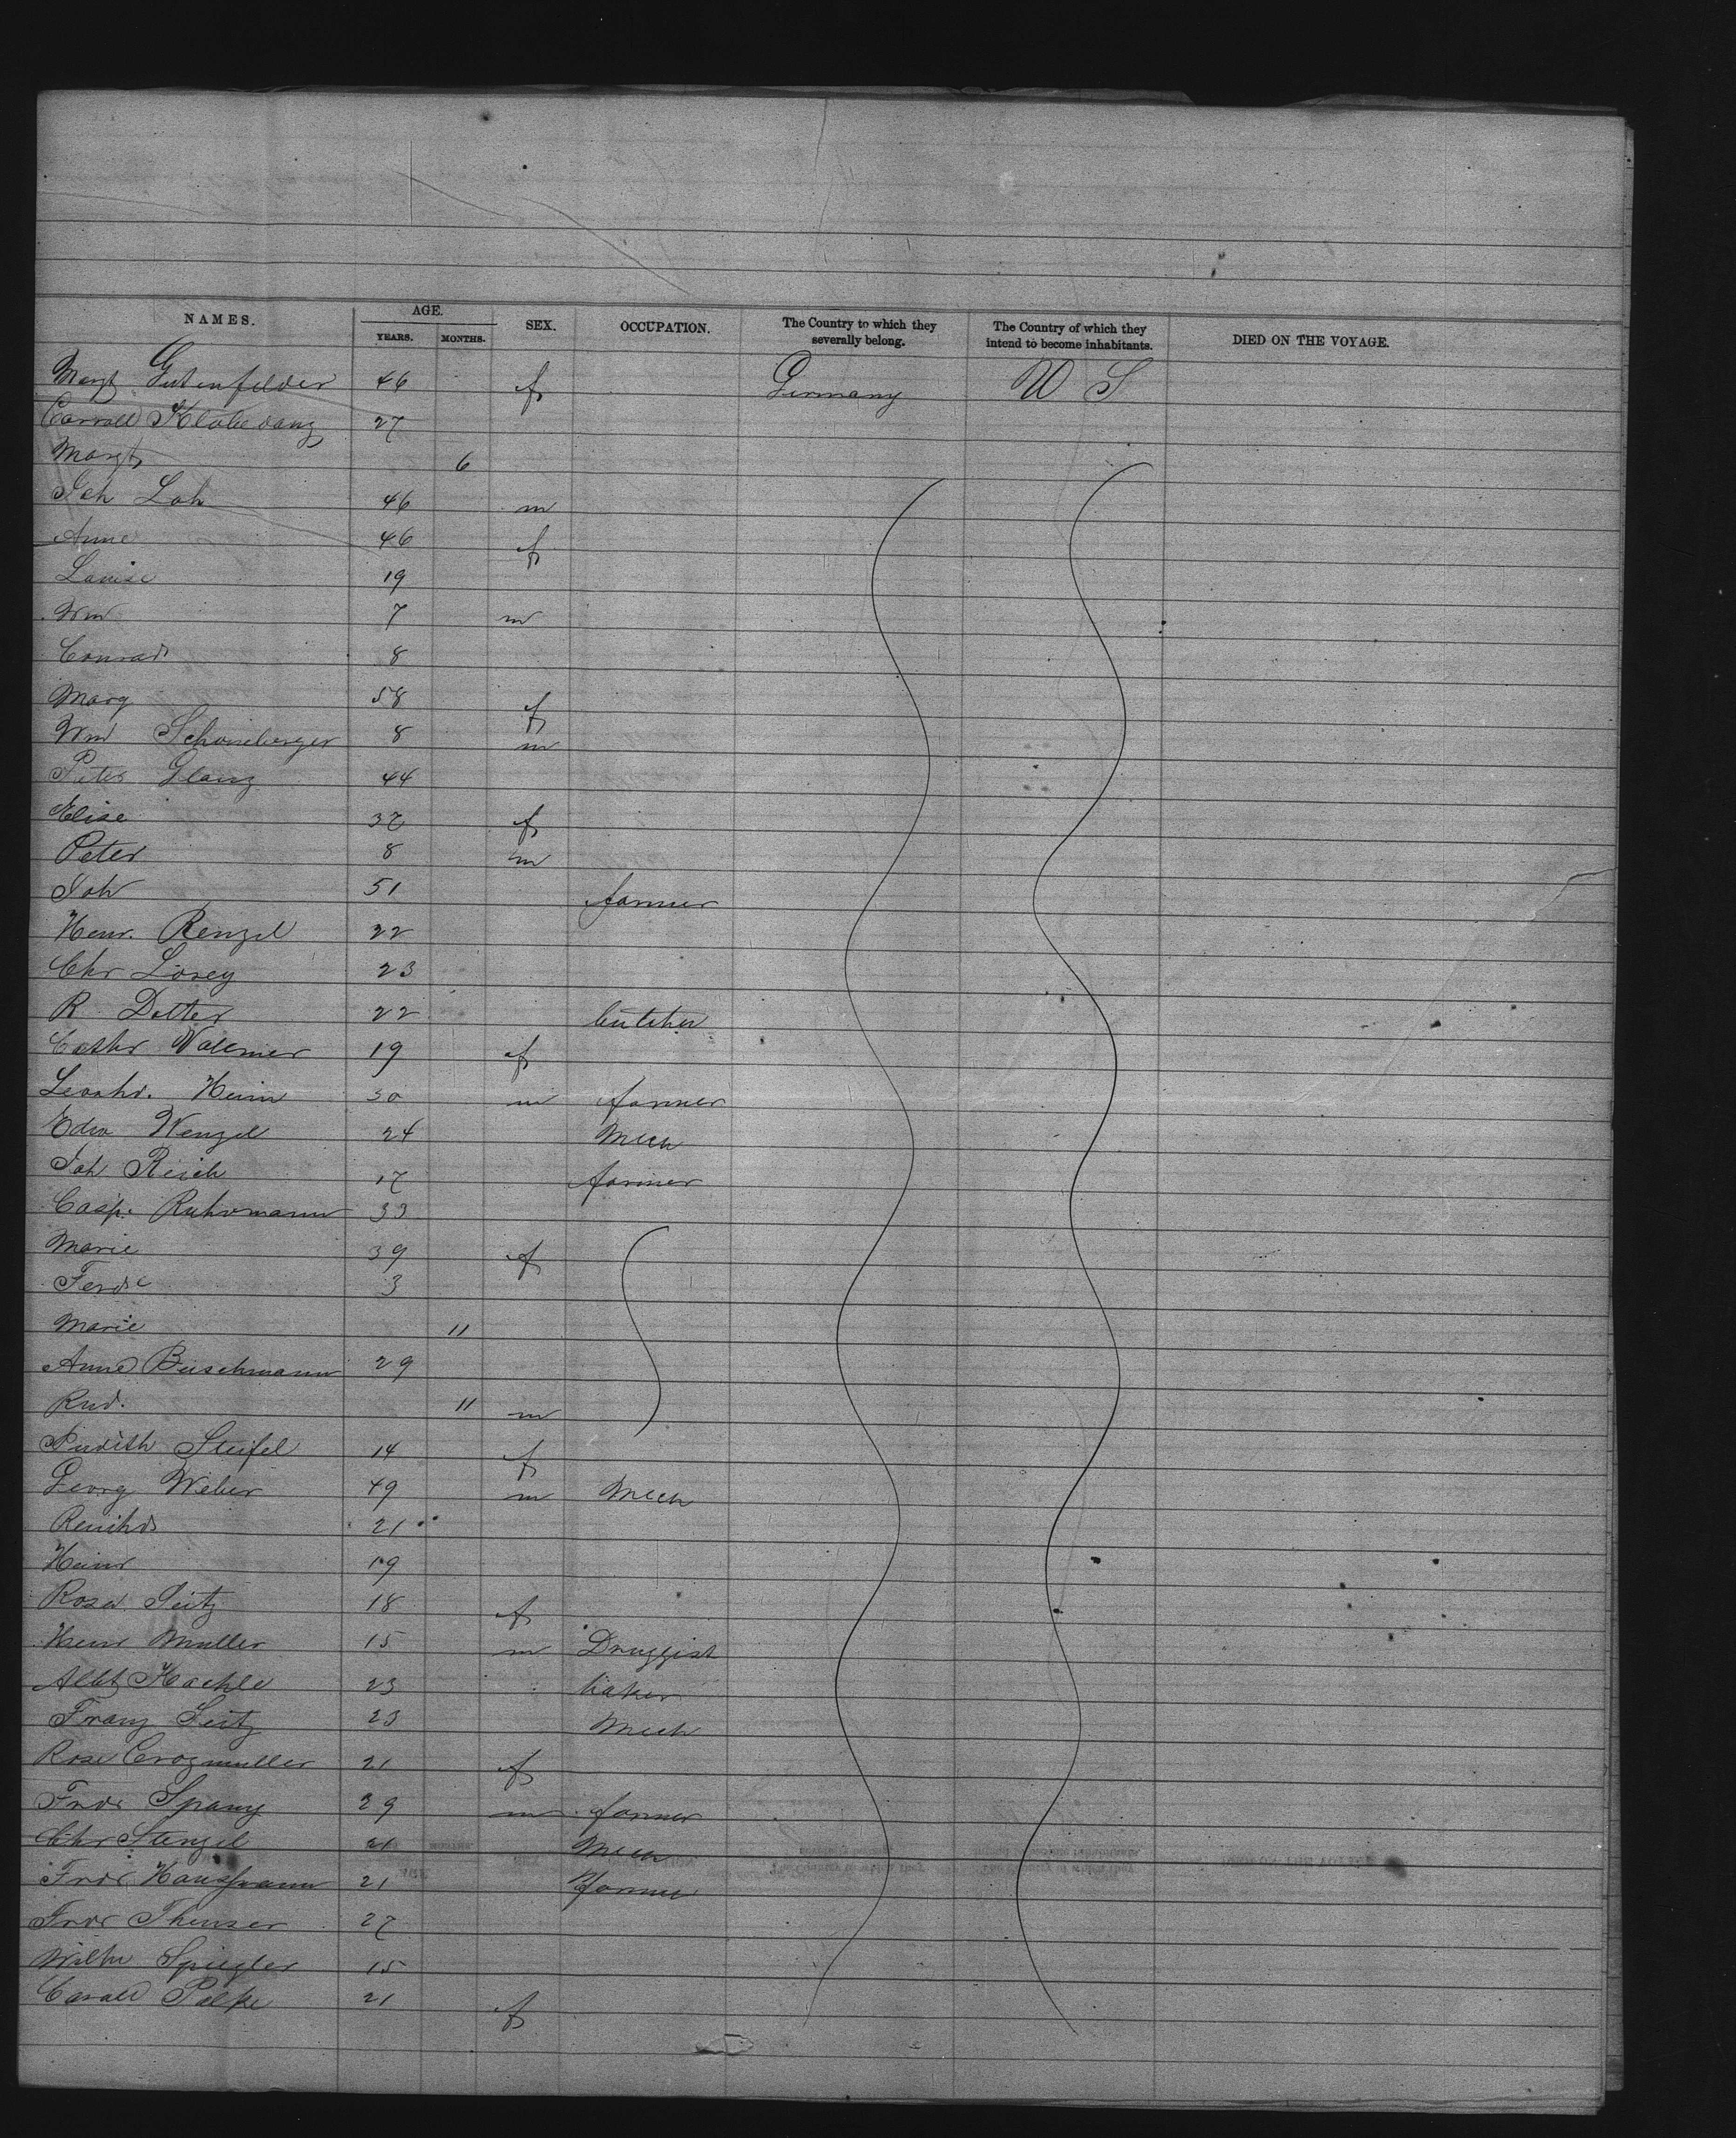 NAMES. AGE. SEX. OCCUPATION. The Country to which they severally belong. The Country of which they intend to become inhabitants. DIED ON THE VOYAGE.
YEARS. MONTHS.
Margt Gutenfelder 46 f Germany U S
27
Margt 6
Joh Loh 46 m
Anne 46 f
Louise 19
Wm 7 m
Conrad 8
Marg 58 f
Wm Schoneberger 8 m
Peter Glanz 44
Elise 37 f
Peter 8 m
Joh 51 farmer
Henr. Renzel 22
Chr Losey 23
R. Dotter 22 butcher
Cathr Wallmer 19 f
Leonhr. Heim 30 m farmer
Edw Wenzel 24 Mech
Joh Reich 17 farmer
Casp. Ruhrmann 33
Marie 39 f
Ferde 3
Marie 11
Anne Buschmann 29
Rud. 11 m
Judith Steifel 14 f
Georg Weber 49 m Mech
Reinhd 21
Heinr 19
Rosa Seitz 18 f
Heinr Muller 15 m Druggist
Albt Kachle 23 baker
Franz Seitz 23 Mech
Rose 21 f
Fredr Spany 29 m farmer
Chr Stenzel 21 Mech
Fredr Haussmann 21 farmer
Fredr Thenser 27
Wilhe Spiegler 15
21 f